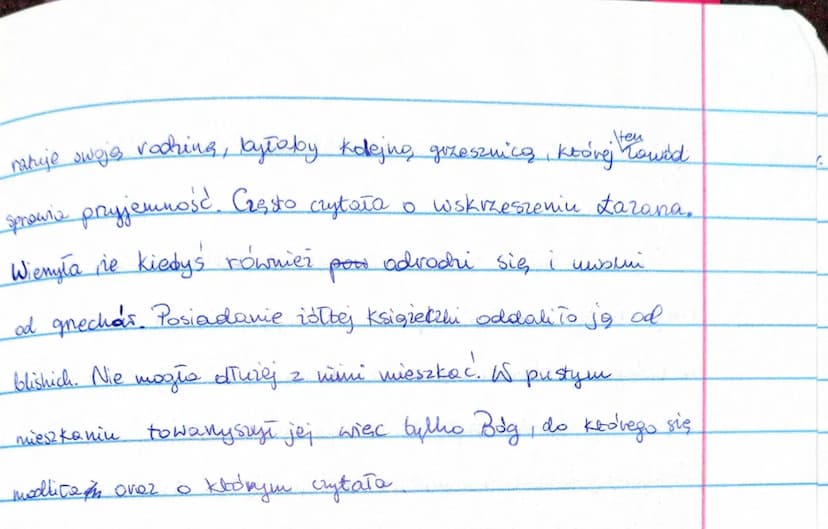 ratuje swoją rodzinę, byłaby kolejną grzesznicą, której ten zawód
sprawia przyjemność. Często czytała o wskrzeszeniu Łazarza.
Wierzyła, że kiedyś również pow odrodzi się i uwolni
od grzechów. Posiadanie żółtej książeczki oddaliło ją od
bliskich. Nie mogła dłużej z nimi mieszkać. W pustym
mieszkaniu towarzyszył jej więc tylko Bóg, do którego się
modliła oraz o którym czytała.